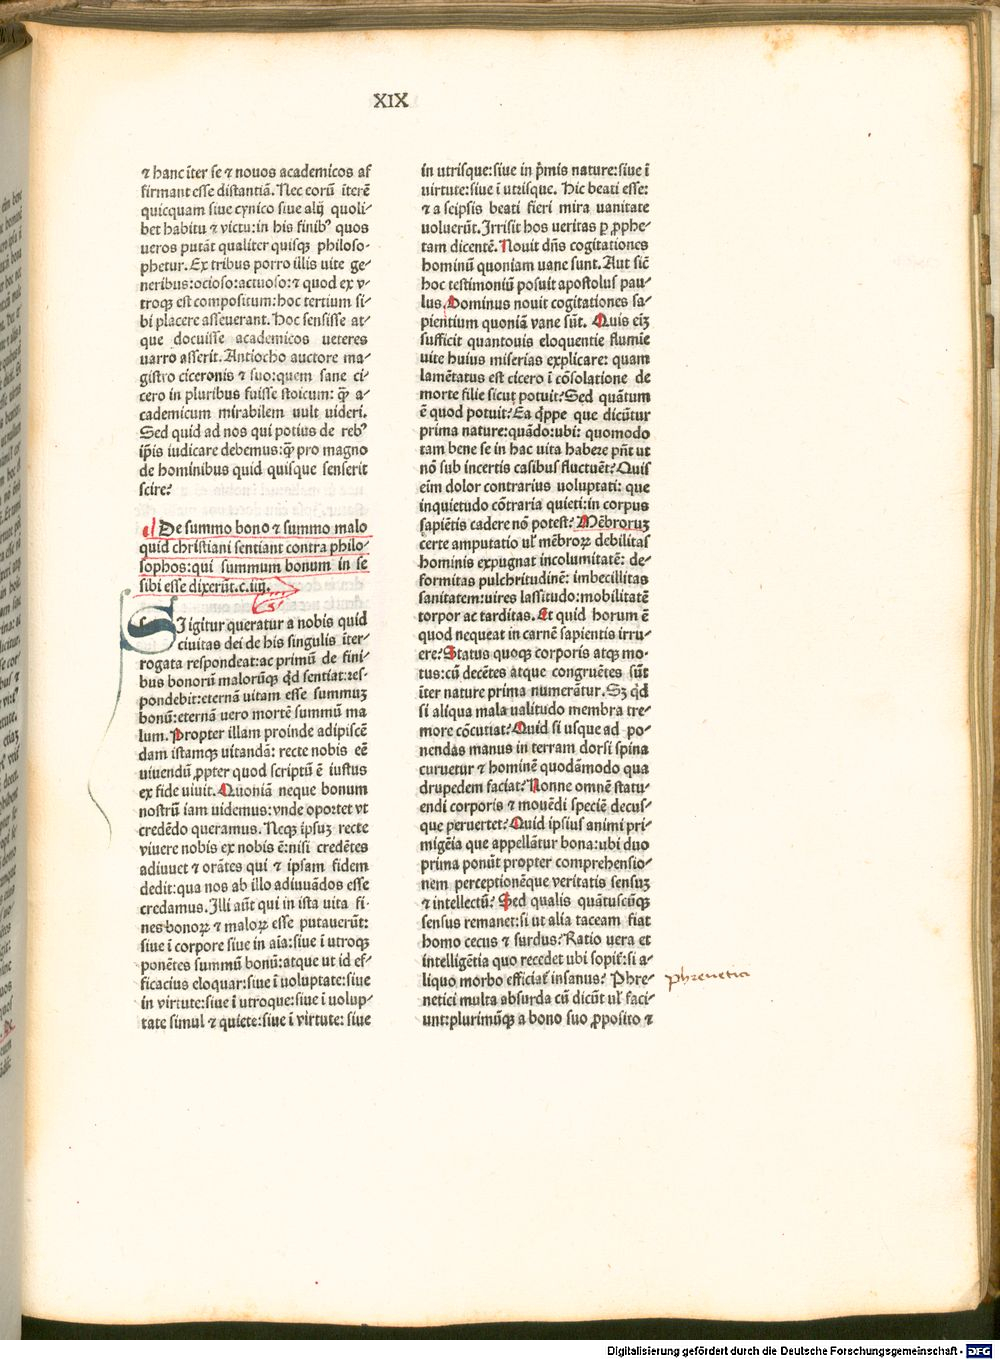 XIX
⁊ hanc ĩter se ⁊ nouos academicos af
firmant esse distantiã. Nec corũ ĩterẽ
quicquam siue cynico siue alij quoli-
bet habitu ⁊ victu: in his finibꝰ quos
ueros putãt qualiter quisqꝫ philoso-
phetur. Ex tribus porro illis uite ge-
neribus: ocioso: actuoso: ⁊ quod ex v-
troqꝫ est compositum: hoc tertium si-
bi placere asseuerant. Hoc sensisse at-
que docuisse academicos ueteres
uarro asserit. Antiocho auctore ma-
gistro ciceronis ⁊ suo: quem sane ci-
cero in pluribus fuisse stoicum: ꝙ̃ a-
cademicum mirabilem uult uideri.
Sed quid ad nos qui potius de rebꝰ
ip̃is iudicare debemus: ꝙ̃ pro magno
de hominibus quid quisque senserit
scire?
De summo bono ⁊ summo malo
quid christiani sentiant contra philo-
sophos: qui summum bonum in se
sibi esse dixerũt. c. iiij.
SI igitur queratur a nobis quid
ciuitas dei de his singulis ĩter-
rogata respondeat: ac primũ de fini-
bus bonorũ malorũqꝫ qd̃ sentiat: res-
pondebit: eternã uitam esse summuꝫ
bonũ: eternã uero mortẽ summũ ma
lum. Propter illam proinde adipiscẽ
dam istamqꝫ uitandã: recte nobis eẽ
uiuendũ ꝓpter quod scriptũ ẽ iustus
ex fide uiuit. Quoniã neque bonum
nostrũ iam uidemus: vnde oportet vt
credẽdo queramus. Neqꝫ ipsuꝫ recte
viuere nobis ex nobis ẽ: nisi credẽtes
adiuuet ⁊ orãtes qui ⁊ ipsam fidem
dedit: qua nos ab illo adiuuãdos esse
credamus. Illi aũt qui in ista uita fi-
nes bonoꝝ ⁊ maloꝝ esse putauerũt:
siue ĩ corpore siue in aĩa: siue ĩ utroqꝫ
ponẽtes summũ bonũ: atque ut id ef-
ficacius eloquar: siue ĩ uoluptate: siue
in virtute: siue ĩ utroque: siue ĩ uolup-
tate simul ⁊ quiete: siue ĩ virtute: siue
in utrisque: siue in p̃mis nature: siue ĩ
virtute: siue ĩ utrisque. Hic beati esse:
⁊ a seipsis beati fieri mira uanitate
voluerũt. Irrisit hos veritas ꝑ ꝓphe-
tam dicentẽ. Nouit dñs cogitationes
hominũ quoniam uane sunt. Aut sic̃
hoc testimoniũ posuit apostolus pau-
lus. Dominus nouit cogitationes sa-
pientium quoniã vane sũt. Quis eiꝫ
sufficit quantouis eloquentie flumie
uite huius miserias explicare: quam
lamẽtatus est cicero ĩ cõsolatione de
morte filie sicut potuit? Sed quãtum
ẽ quod potuit? Ea q̃ppe que dicũtur
prima nature: quãdo: ubi: quomodo
tam bene se in hac uita habere pñt ut
nõ sub incertis casibus fluctuẽt? Quis
eĩm dolor contrarius uoluptati: que
inquietudo cõtraria quieti: in corpus
sapiẽtis cadere nõ potest? Mẽbroruꝫ
certe amputatio ul̃ mẽbroꝝ debilitas
hominis expugnat incolumitatẽ: de-
formitas pulchritudinẽ: imbecillitas
sanitatem: uires lassitudo: mobilitatẽ
torpor ac tarditas. Et quid horum ẽ
quod nequeat in carnẽ sapientis irru-
ere? Status quoqꝫ corporis atqꝫ mo-
tus: cũ decẽtes atque congruẽtes sũt
ĩter nature prima numerãtur. Sꝫ qd̃
si aliqua mala ualitudo membra tre-
more cõcutiat? Quid si usque ad po-
nendas manus in terram dorsi spina
curuetur ⁊ hominẽ quodãmodo qua
drupedem faciat? Nonne omnẽ statu-
endi corporis ⁊ mouẽdi speciẽ decus-
que peruertet? Quid ipsius animi pri-
migẽia que appellãtur bona: ubi duo
prima ponũt propter comprehensio-
nem perceptionẽque veritatis sensuꝫ
⁊ intellectũ? Sed qualis quãtuscũqꝫ
sensus remanet: si ut alia taceam fiat
homo cecus ⁊ surdus? Ratio uera et
intelligẽtia quo recedet ubi sopit̃: si a-
liquo morbo efficiat̃ insanus? Phre-
netici multa absurda cũ dicũt ul̃ faci-
unt: plurimũqꝫ a bono suo ꝓposito ⁊
phrenetici
Digitalisierung gefördert durch die Deutsche Forschungsgemeinschaft - DFG